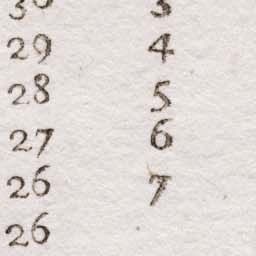 30 3
29 4
28 5
27 6
26 7
26